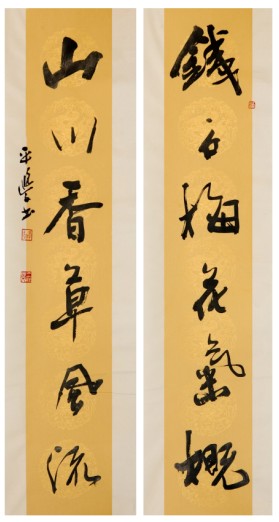 鐵石梅花氣概
山川香草風流